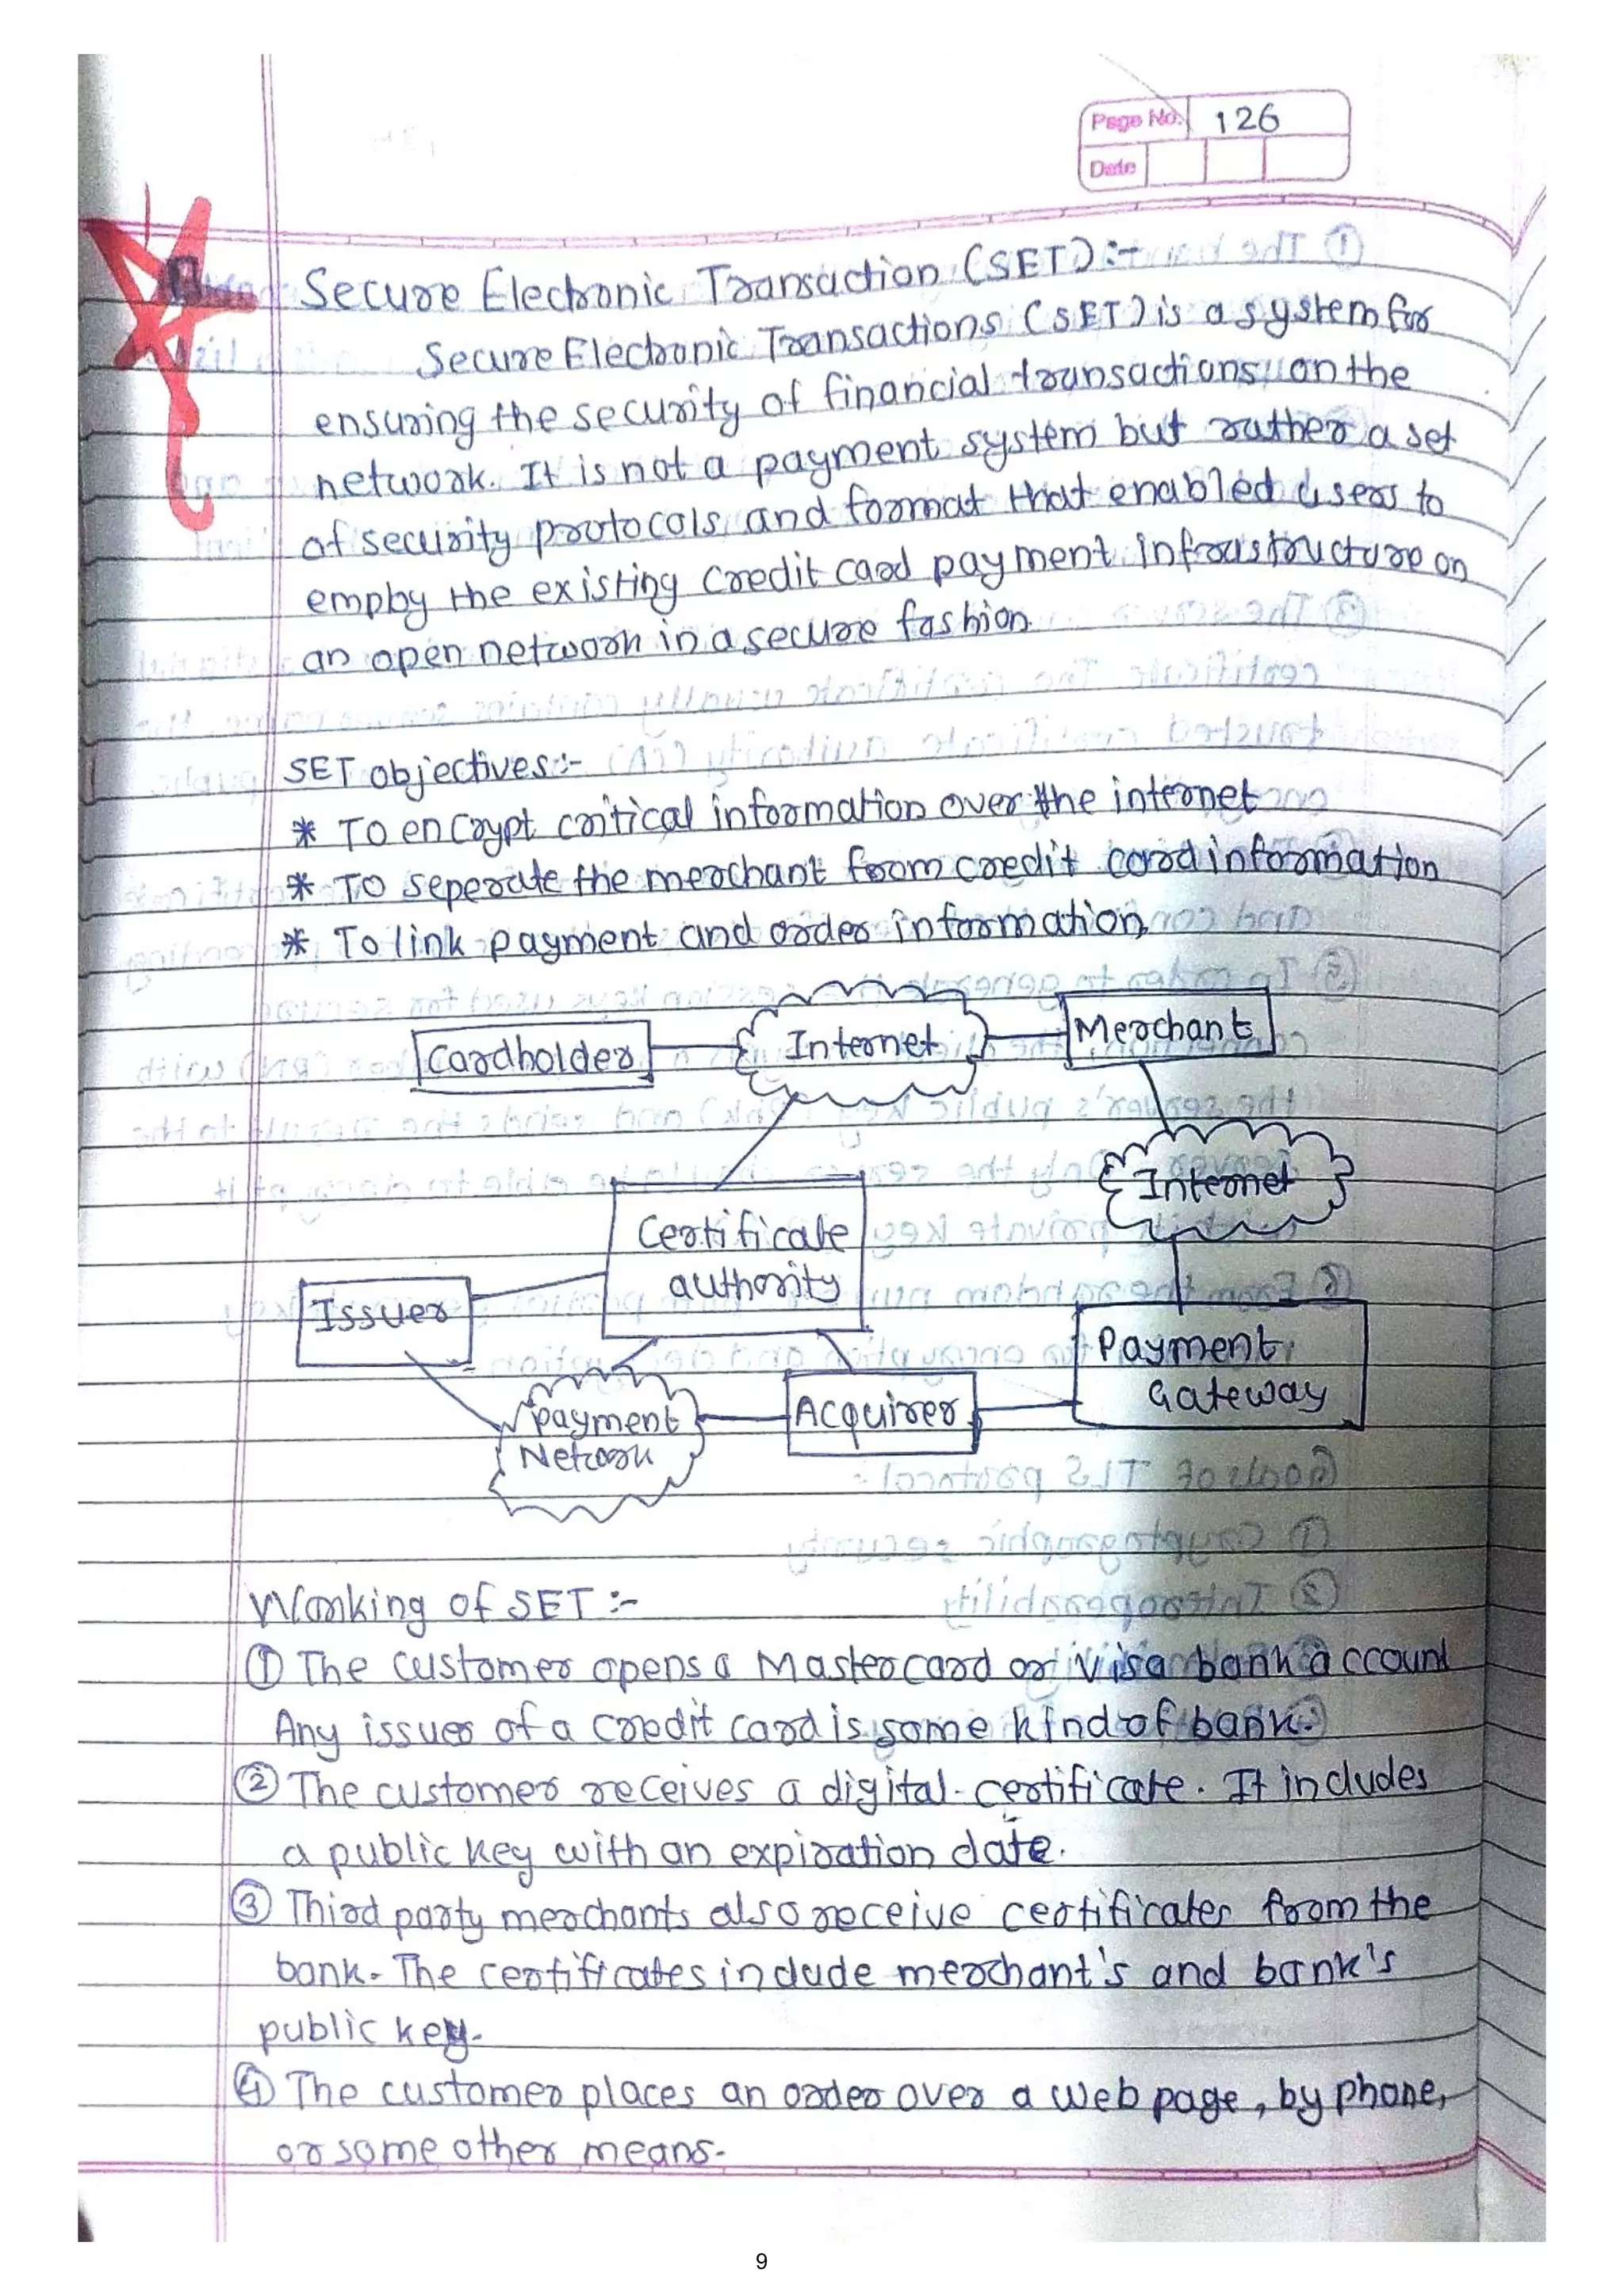 Page No. 126
Date
Secure Electronic Transaction (SET) :-
Secure Electronic Transactions (SET) is a system for
ensuring the security of financial transactions on the
network. It is not a payment system but rather a set
of security protocols and format that enabled users to
employ the existing credit card payment infrastructure on
an open network in a secure fashion.
SET objectives :-
* To encrypt critical information over the internet
* To seperate the merchant from credit card information
* To link payment and order information.
Cardholder
Internet
Merchant
Internet
Certificate
authority
Issuer
Payment
Gateway
Payment
Network
Acquirer
Working of SET :-
① The customer opens a Mastercard or Visa bank account
Any issuer of a credit card is some kind of bank.
② The customer receives a digital certificate. It includes
a public key with an expiration date.
③ Third party merchants also receive certificates from the
bank. The certificates include merchant's and bank's
public key.
④ The customer places an order over a web page, by phone,
or some other means.
9